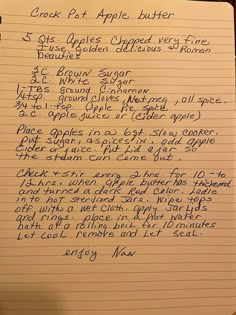 Crock Pot Apple butter
5 Qts. Apples Chopped very fine
I use golden delicious & Roman
Beauties
3 C Brown Sugar
2 C White Sugar
1 TBS Ground Cinnamon
1/4 tsp ground cloves, Nutmeg, all spice.
3/4 to 1 tsp Apple Pie spice
2 C. apple juice or (cider apple)
Place apples in a 6qt. Slow cooker.
Put sugar, & spices in, add apple
Cider or juice. Put Lid ajar so
the steam can come out.
Check & stir every 2 hrs. for 10 - to
12 hrs. when apple butter has thickened
and turned a dark Red color. Ladle
in to hot sterilized Jars. Wipe tops
off with a wet cloth. apply Jar Lids
and rings. place in a Hot water
bath at a rolling boil for 10 minutes
Let cool remove and let seal.
enjoy Nan